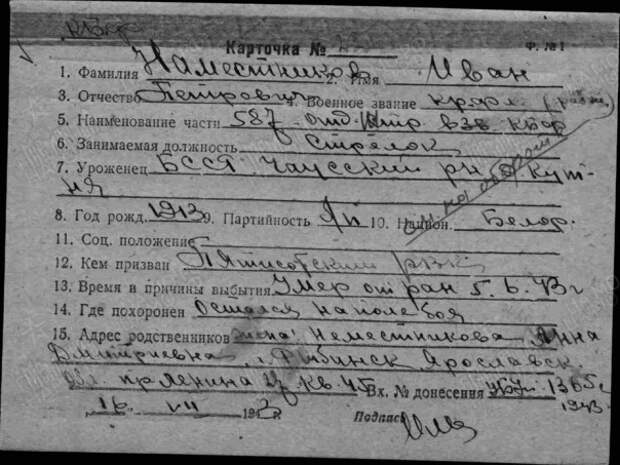 КБФ
Карточка № Ф. №1
1. Фамилия Наместников 2. Имя Иван
3. Отчество Петрович 4. Военное звание кр-фл.
5. Наименование части 587 отд. взв КБФ
6. Занимаемая должность Стрелок
7. Уроженец БССР Чаусский р-н Кут-
ня
8. Год рожд. 1913 9. Партийность б/п 10. Национ. Белор.
см. на обороте
11. Соц. положение
12. Кем призван РВК
13. Время и причины выбытия Умер от ран 5.6.43г
14. Где похоронен Остался на поле боя
15. Адрес родственников жена Неместникова Анна
Дмитриевна, г. Рыбинск Ярославск
обл пр Ленина кв 45 Вх. № донесения 1365с
16 VII 194 1943
Подпись